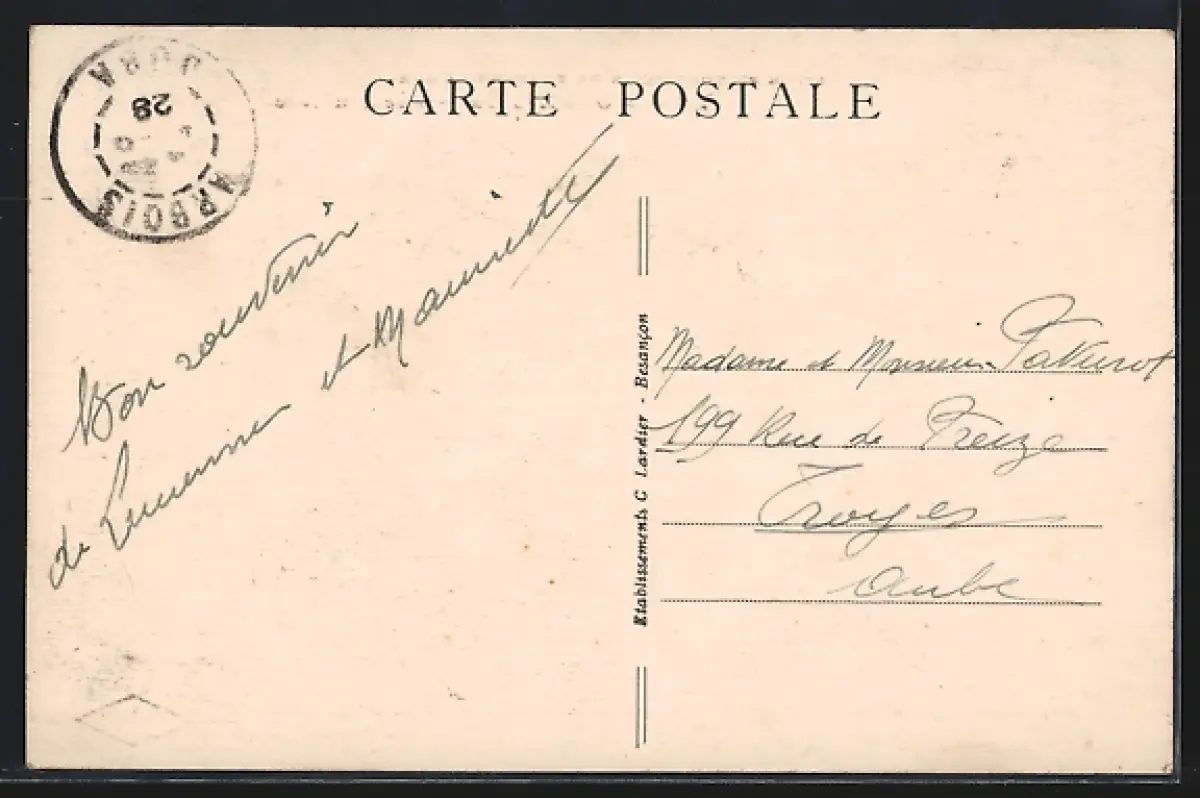 CARTE POSTALE
JURA
28
ARBOIS
Bon souvenir
de et
Etablissements C Lardier - Besançon
Madame et Monsieur
199 Rue de Preize
Troyes
Aube